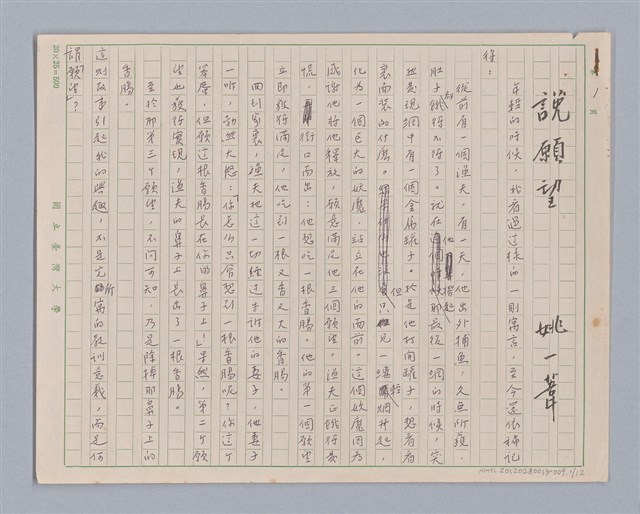 說願望
姚一葦
年輕的時候，我看過這樣的一則寓言，至今還依稀記
得：
從前有一個漁夫，有一天，他出外捕魚，久無所獲，
肚子餓得不得了。就在他撈起最後一網的時候，突
然發現網中有一個金屬罐子。於是他打開罐子，想看看
裏面裝的什麼。但只見一堆輕烟升起，
化為一個巨大的妖魔，站立在他的面前。這個妖魔因為
感謝他將他釋放，願意滿足他三個願望。漁夫正餓得發
慌，衝口而出：他想吃一根香腸。他的第一個願望
立即獲得滿足，他吃到一根又香又大的香腸。
回到家裏，漁夫把這一切經過告訴他的妻子，他妻子
一聽，勃然大怒：「你怎的只會想到一根香腸呢？你這個
笨屬，但願這根香腸長在你的鼻子上！」果然，第二個願
望也獲得實現，漁夫的鼻子上長出了一根香腸。
至於那第三個願望，不問可知，乃是除掉那鼻子上的
香腸。
這則故事引起我的興趣，不是它所寓的教訓意義，而是何
謂「願望」？
1
頁
20×25=500
國立臺灣大學
NMTL 20120280019-009.1/12